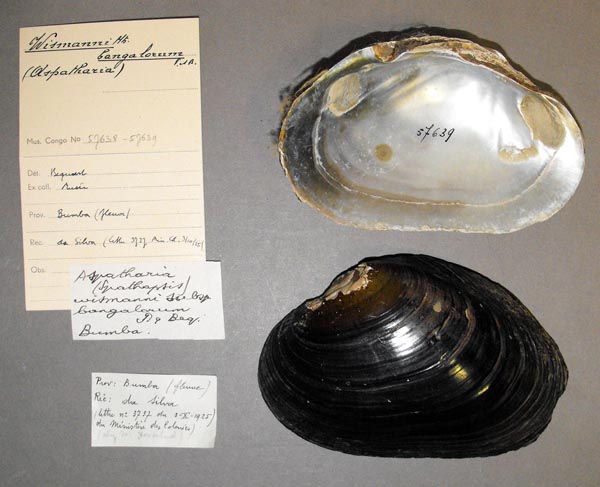 Wismanni Mts.
bangalorum
(Aspatharia) P.&B.
Mus. Congo No 57638-57639
Dét. Bequaert
Ex coll. Musée
Prov. Bumba (fleuve)
Rec. da Silva (lettre 3737 Min. Col.
Obs.
Aspatharia
(Spathopsis)
wismanni subsp
bangalorum
P. & Beq.
Bumba.
Prov: Bumba (fleuve)
Réc: da Silva
(lettre n° 3737 du 3-X-1925)
du Ministère des Colonies)
57639